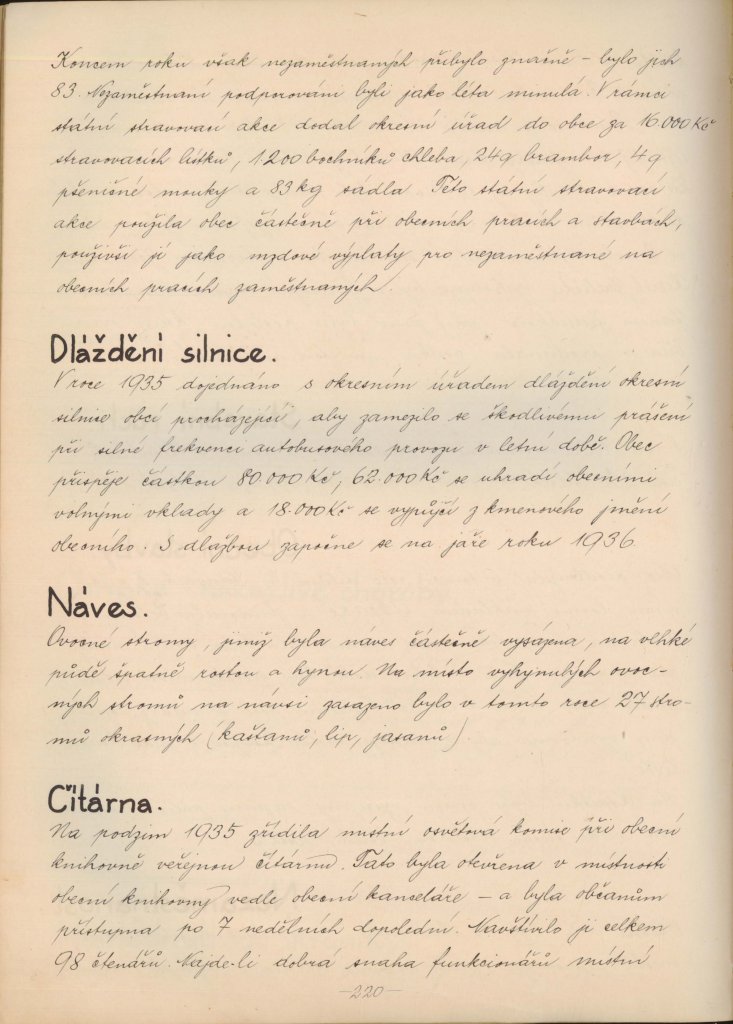 Koncem roku však nezaměstnaných přibylo značně – bylo jich
83. Nezaměstnaní podporováni byli jako léta minulá. V rámci
státní stravovací akce dodal okresní úřad do obce za 16.000 Kč
stravovacích lístků, 1.200 bochníků chleba, 24q brambor, 4q
pšeničné mouky a 83 kg sádla. Této státní stravovací
akce použila obec částečně při obecních pracích a stavbách,
použivši jí jako mzdové výplaty pro nezaměstnané na
obecních pracích zaměstnaných.
Dláždění silnice.
V roce 1935 dojednáno s okresním úřadem dláždění okresní
silnice obcí procházející, aby zamezilo se škodlivému prášení
při silné frekvenci autobusového provozu v letní době. Obec
přispěje částkou 80.000 Kč, 62.000 Kč se uhradí obecními
volnými vklady a 18.000 Kč se vypůjčí z kmenového jmění
obecního. S dlažbou započne se na jaře roku 1936.
Náves.
Ovocné stromy, jimiž byla náves částečně vysázena, na vlhké
půdě špatně rostou a hynou. Na místo vyhynulých ovoc-
ných stromů na návsi zasazeno bylo v tomto roce 27 stro-
mů okrasných (kaštanů, lip, jasanů).
Čítárna.
Na podzim 1935 zřídila místní osvětová komise při obecní
knihovně veřejnou čítárnu. Tato byla otevřena v místnosti
obecní knihovny vedle obecní kanceláře – a byla občanům
přístupna po 7 nedělních dopolední. Navštívilo ji celkem
98 čtenářů. Najde-li dobrá snaha funkcionářů místní
–220–